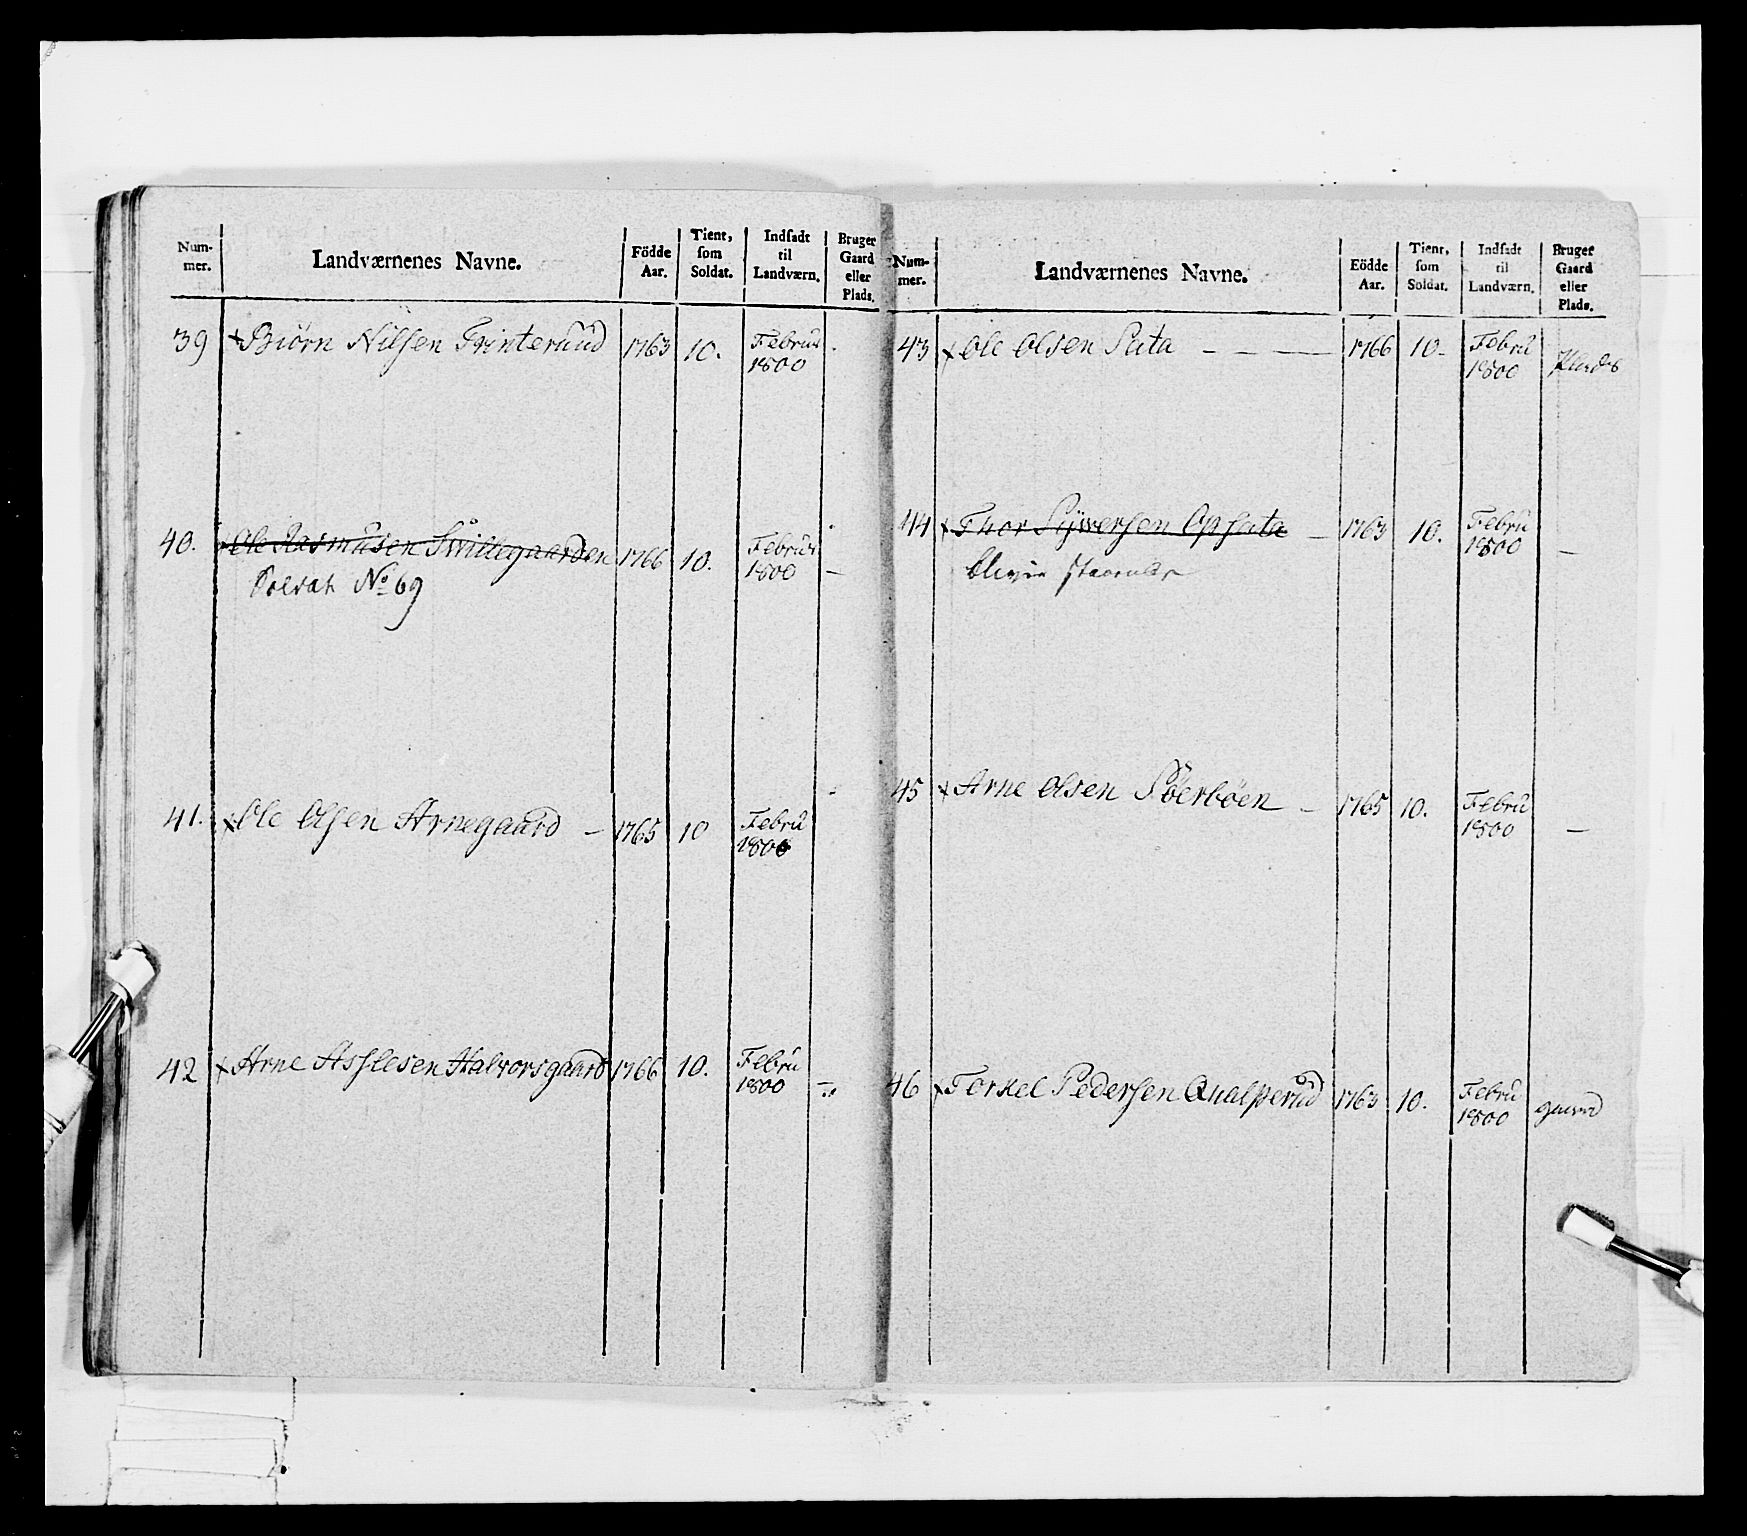 Num-
mer.
Landværnenes Navne.
Födde
Aar.
Tient,
som
Soldat.
Indsadt
til
Landværn.
Bruger
Gaard
eller
Plads.
39 Biørn Nilsen Trinterud 1763 10. Febru
1800
40. Ole Rasmusen Svittegaarden 1766 10. Febru
Soldat No 69 1800 —
41. Ole Olsen Arnegaard — 1765 10 Febru
1800
42 Arne Asslesen Halvorsgaard 1766 10. Febru
1800
Num-
mer.
Landværnenes Navne.
Födde
Aar.
Tient,
som
Soldat.
Indsadt
til
Landværn.
Bruger
Gaard
eller
Plads.
43 Ole Olsen Sata — — — 1766 10 Febru
1800 Plads
44 Thor Sÿversen Opsata — 1763 10. Febru
1800 —
45 Arne Olsen Søerbøen — 1765 10. Febru
1800 —
46 Torkel Pedersen Qualperud 1763 10. Febru
1800 gaard